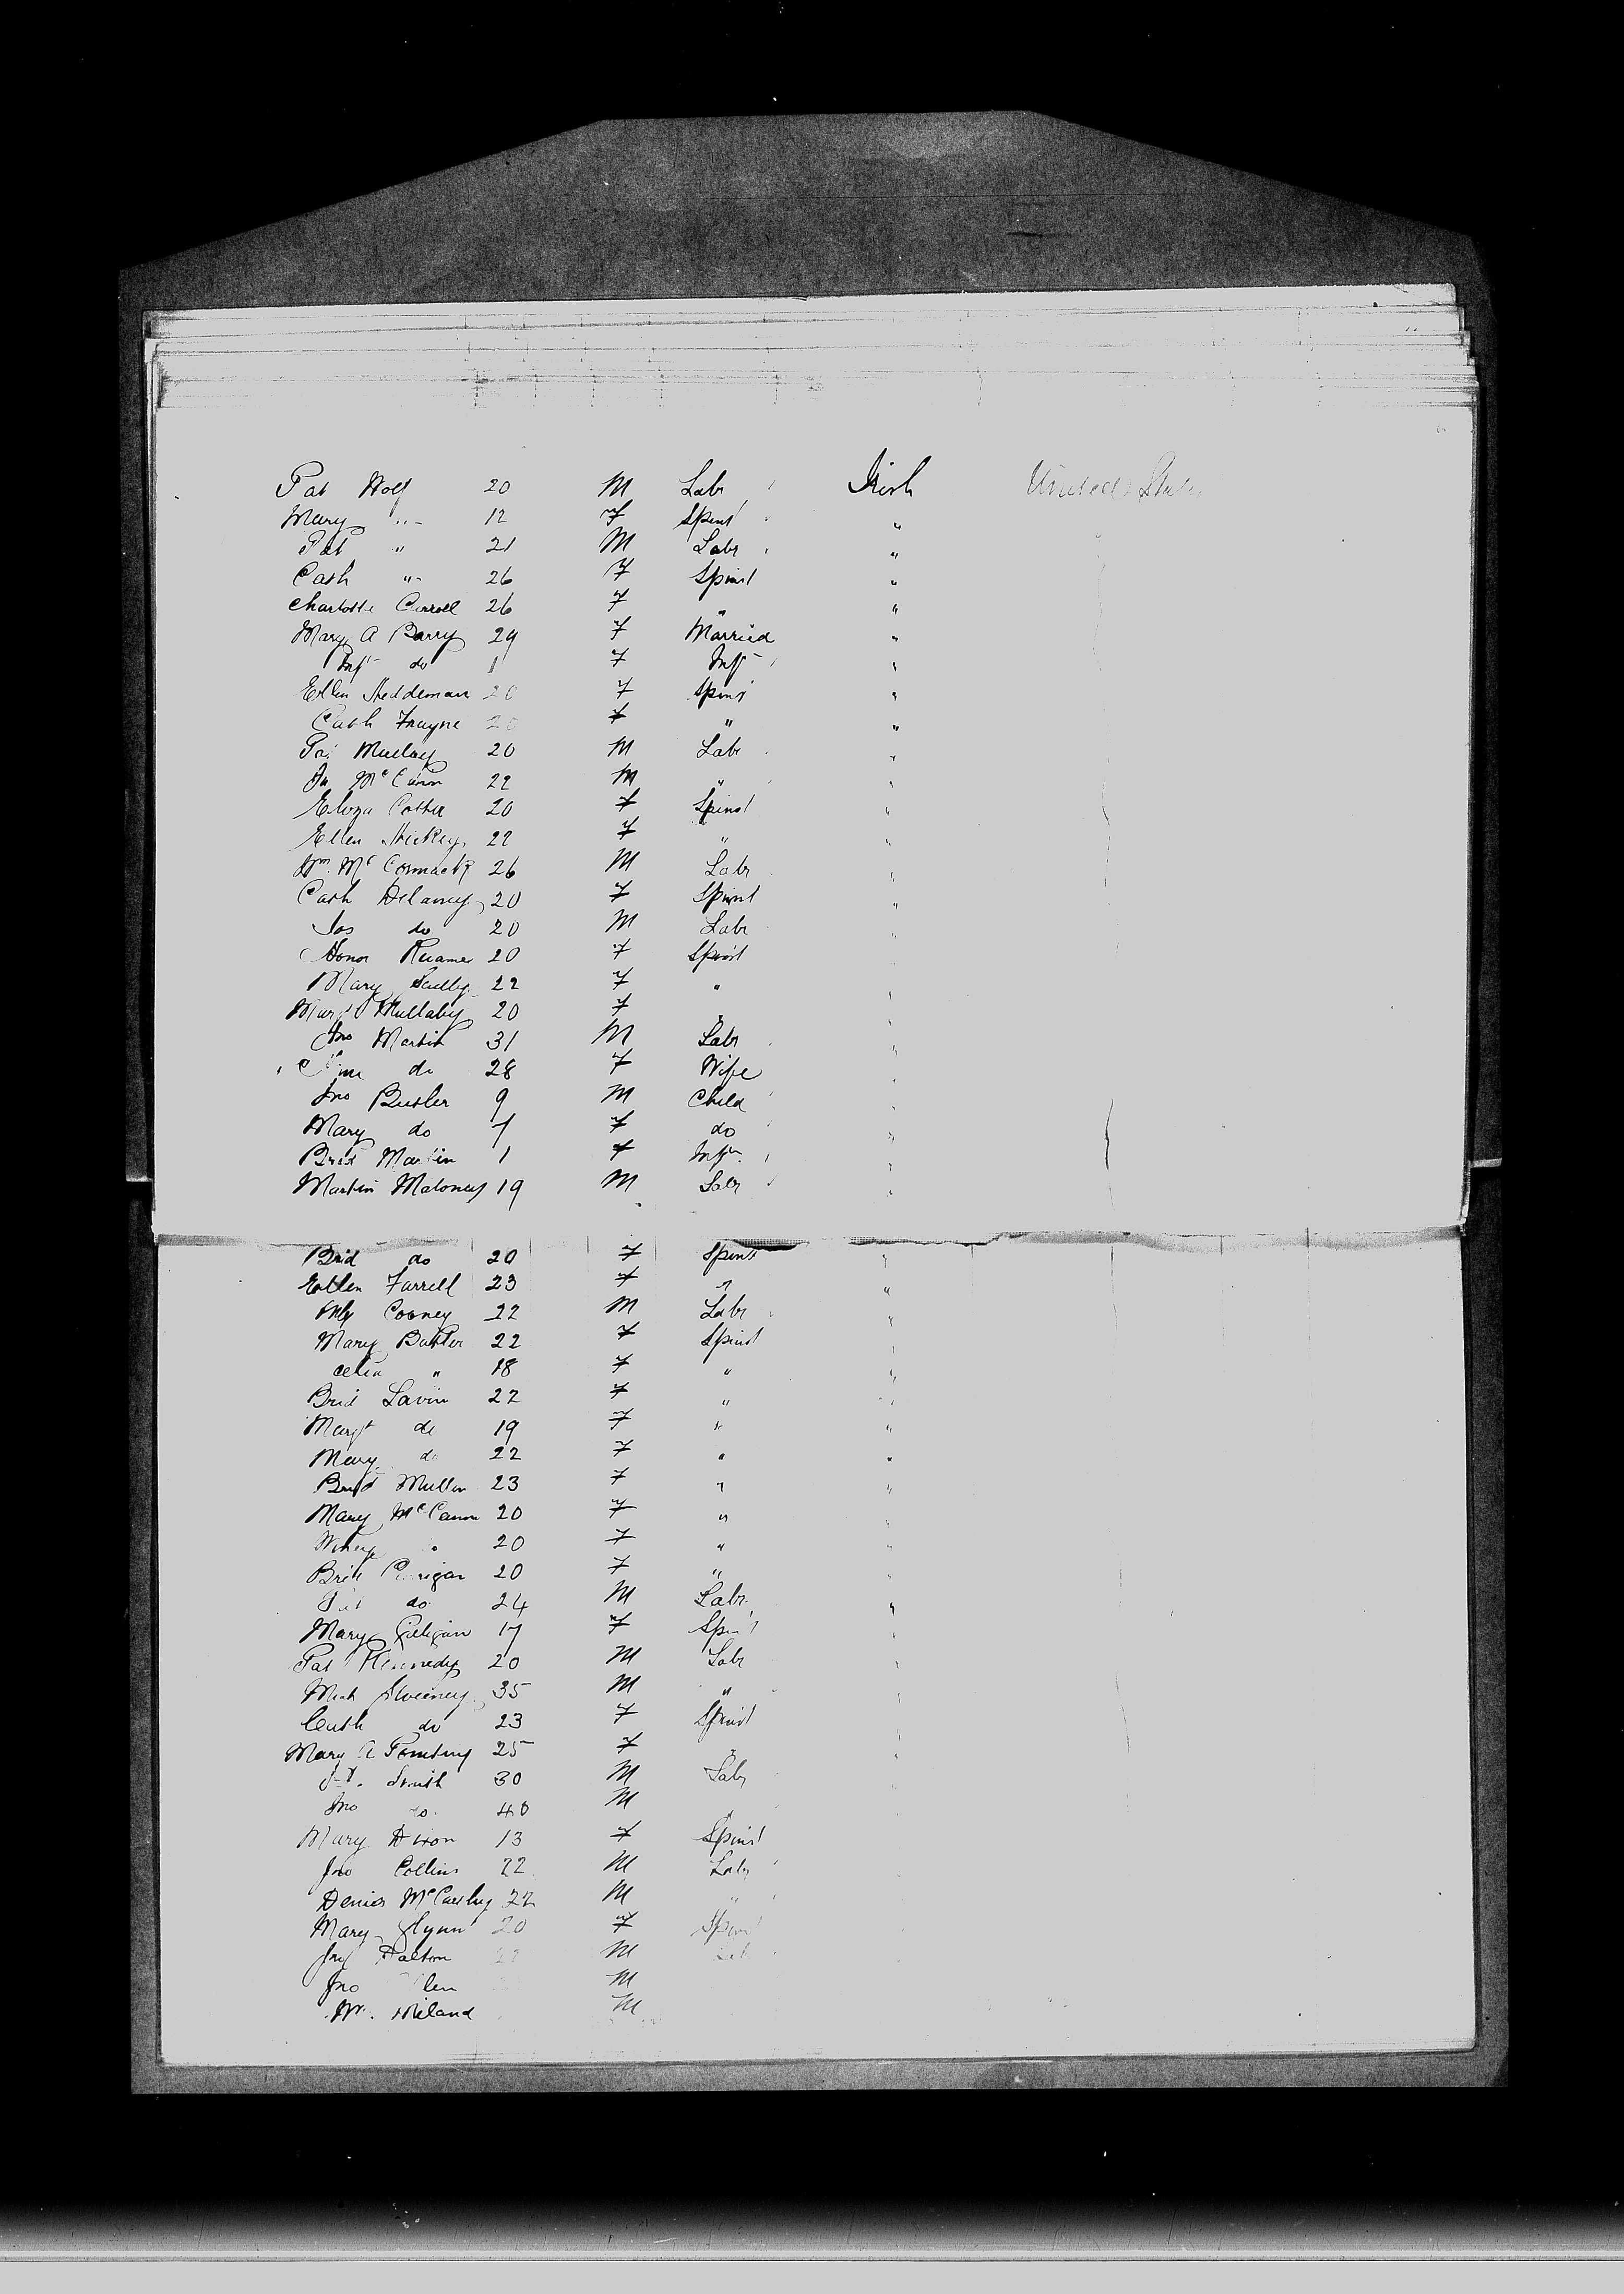 Pat Wolf 20 M Labr Irish United States
Mary " 12 F Spinst "
Pat " 21 M Labr "
Cath " 26 F Spinst "
Charlotte Carroll 26 F " "
Mary A Barry 29 F Married "
Inft do 1 F Inft "
Ellen Heddeman 20 F Spinst "
Cath Frayne 20 F " "
Pat Mullay 20 M Labr "
22 M " "
Eliza Cotter 20 F Spinst "
Ellen Hickey 22 F " "
Wm. McCormack 26 M Labr "
Cath Delaney 20 F Spinst "
Jos do 20 M Labr "
Honor 20 F Spinst
Mary Scully 22 F "
Margt Mullaby 20 F "
Jno Martin 31 M Labr "
do 28 F Wife "
Jno Butler 9 M Child "
Mary do 7 F do "
Brid Martin 1 F Inft "
Martin Maloney 19 M Labr "
Brid do 20 F Spinst "
Ellen Farrell 23 F " "
Cooney 22 M Labr "
Mary Butler 22 F Spinst "
Celia " 18 F " "
Brid Lavin 22 F " "
Margt do 19 F " "
Mary do 22 F " "
Brid Mullen 23 F " "
Mary McCann 20 F " "
do 20 F " "
Brid 20 F " "
Pat do 24 M Labr "
Mary Galligan 17 F Spinst "
Pat Kennedy 20 M Labr "
Mich Sweeney 35 M " "
Cath do 23 F Spinst "
Mary A 25 F " "
Smith 30 M Labr "
Jno do 40 M "
Mary Dixon 13 F Spinst
Jno Collins 22 M Labr
Denis McCarthy 22 M "
Mary Flynn 20 F Spinst
Dalton M Labr
Jno M
Wm. M